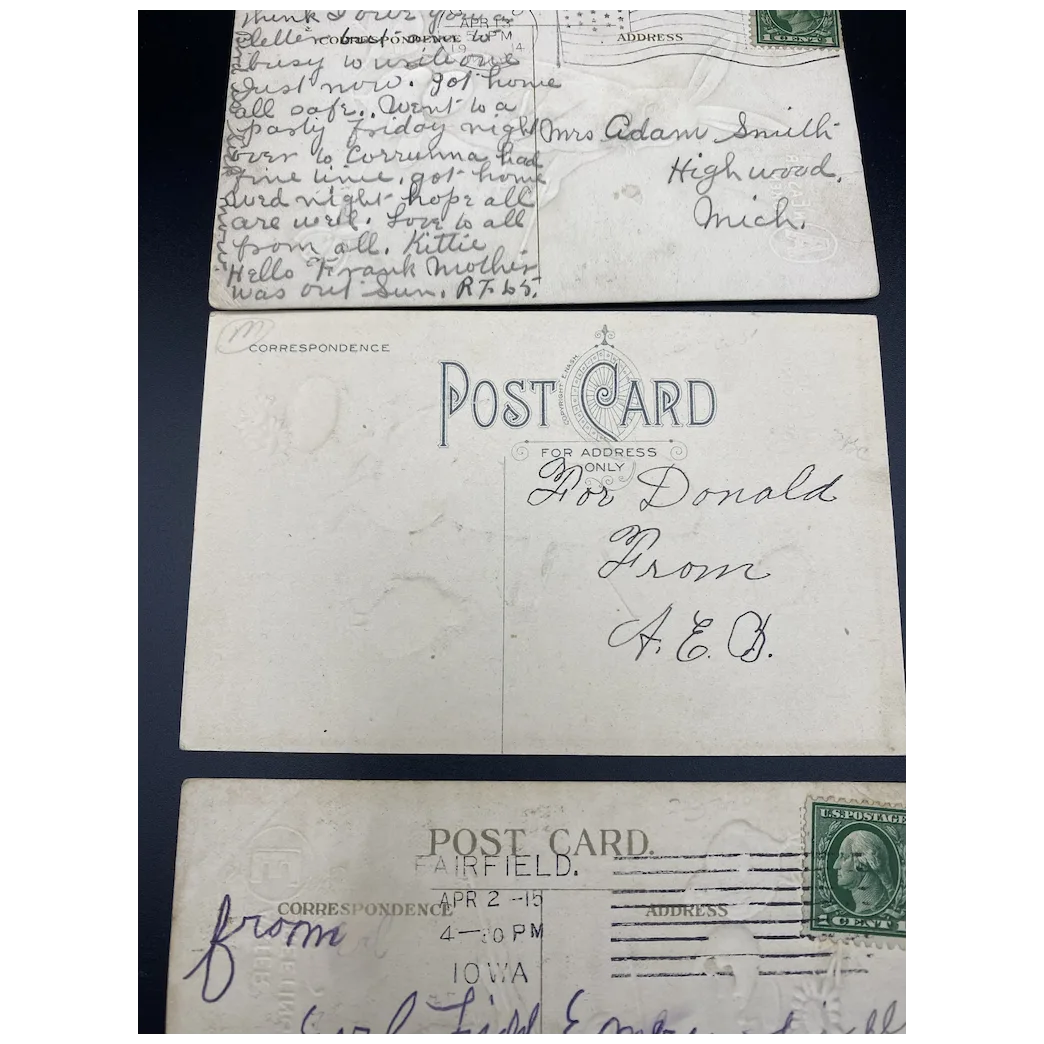 think I over your
letter but am to
busy to write one
Just now. got home
all safe.. Went to a
party friday night
over to Corrunna had
fine time, got home
wed night hope all
are well. Love to all
from all. Kittie
Hello Frank Mother
was out Sun. R.F.D 5.
CORRESPONDENCE
APR 13
PM
19 14
ADDRESS
1 CENT
Mrs Adam Smith
Highwood,
Mich.
M
CORRESPONDENCE
POST CARD
COPYRIGHT E. NASH
FOR ADDRESS
ONLY
For Donald
From
A. E. B.
POST CARD.
FAIRFIELD.
APR 2 -15
4-30 PM
IOWA
CORRESPONDENCE
ADDRESS
U.S. POSTAGE
1 CENT 1
from